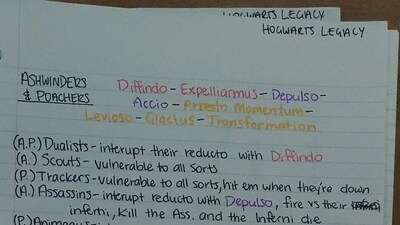 HOGWARTS LEGACY
HOGWARTS LEGACY
ASHWINDERS
& POACHERS
Diffindo - Expelliarmus - Depulso -
Accio - Arresto Momentum -
Levioso - Glacius - Transformation
(A.P.) Dualists - interupt their reducto with Diffindo
(A.) Scouts - vulnerable to all sorts
(P.) Trackers - vulnerable to all sorts, hit em when they're down
(A.) Assassins - interupt reducto with Depulso, fire vs their
inferni, kill the Ass. and the Inferni die